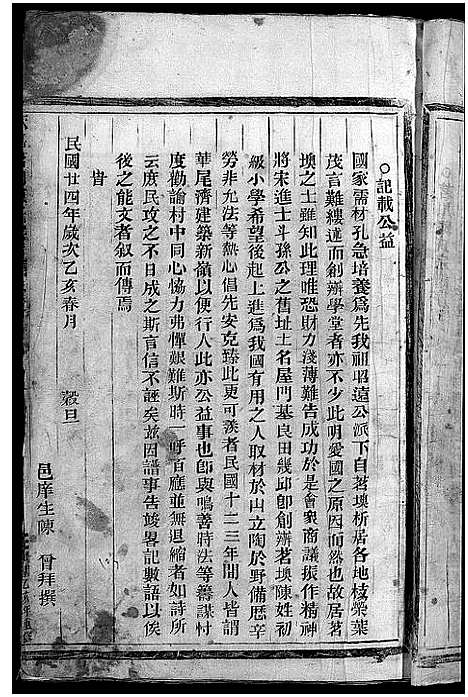 ○記載公益
國家需材孔急培養爲先我祖昭遠公派下自茗墺析居各地枝榮葉
茂言難縷述而創辦學堂者亦不少此明愛國之原因而然也故居茗
墺之士雖知此理唯恐財力淺薄難告成功於是會衆商議振作精神
將宋進士斗孫公之舊址土名屋門基良田幾邱卽創辦茗墺陳姓初
級小學希望後起上進爲我國有用之人取材於山立陶於野備歷辛
勞非允法等熱心倡先安克臻此更可羨者民國十二三年間人皆謂
華尾濟建築新嶺以便行人此亦公益事也卽與鳴善時法等籌謀忖
度勸諭村中同心協力弗憚艱難斯時一呼百應並無退縮者如詩所
云庶民攻之不日成之斯言信不誣矣茲因譜事告竣畧記數語以俟
後之能文者叙而傳焉
旹
民國廿四年歲次乙亥春月 穀旦
邑庠生陳 曾拜撰